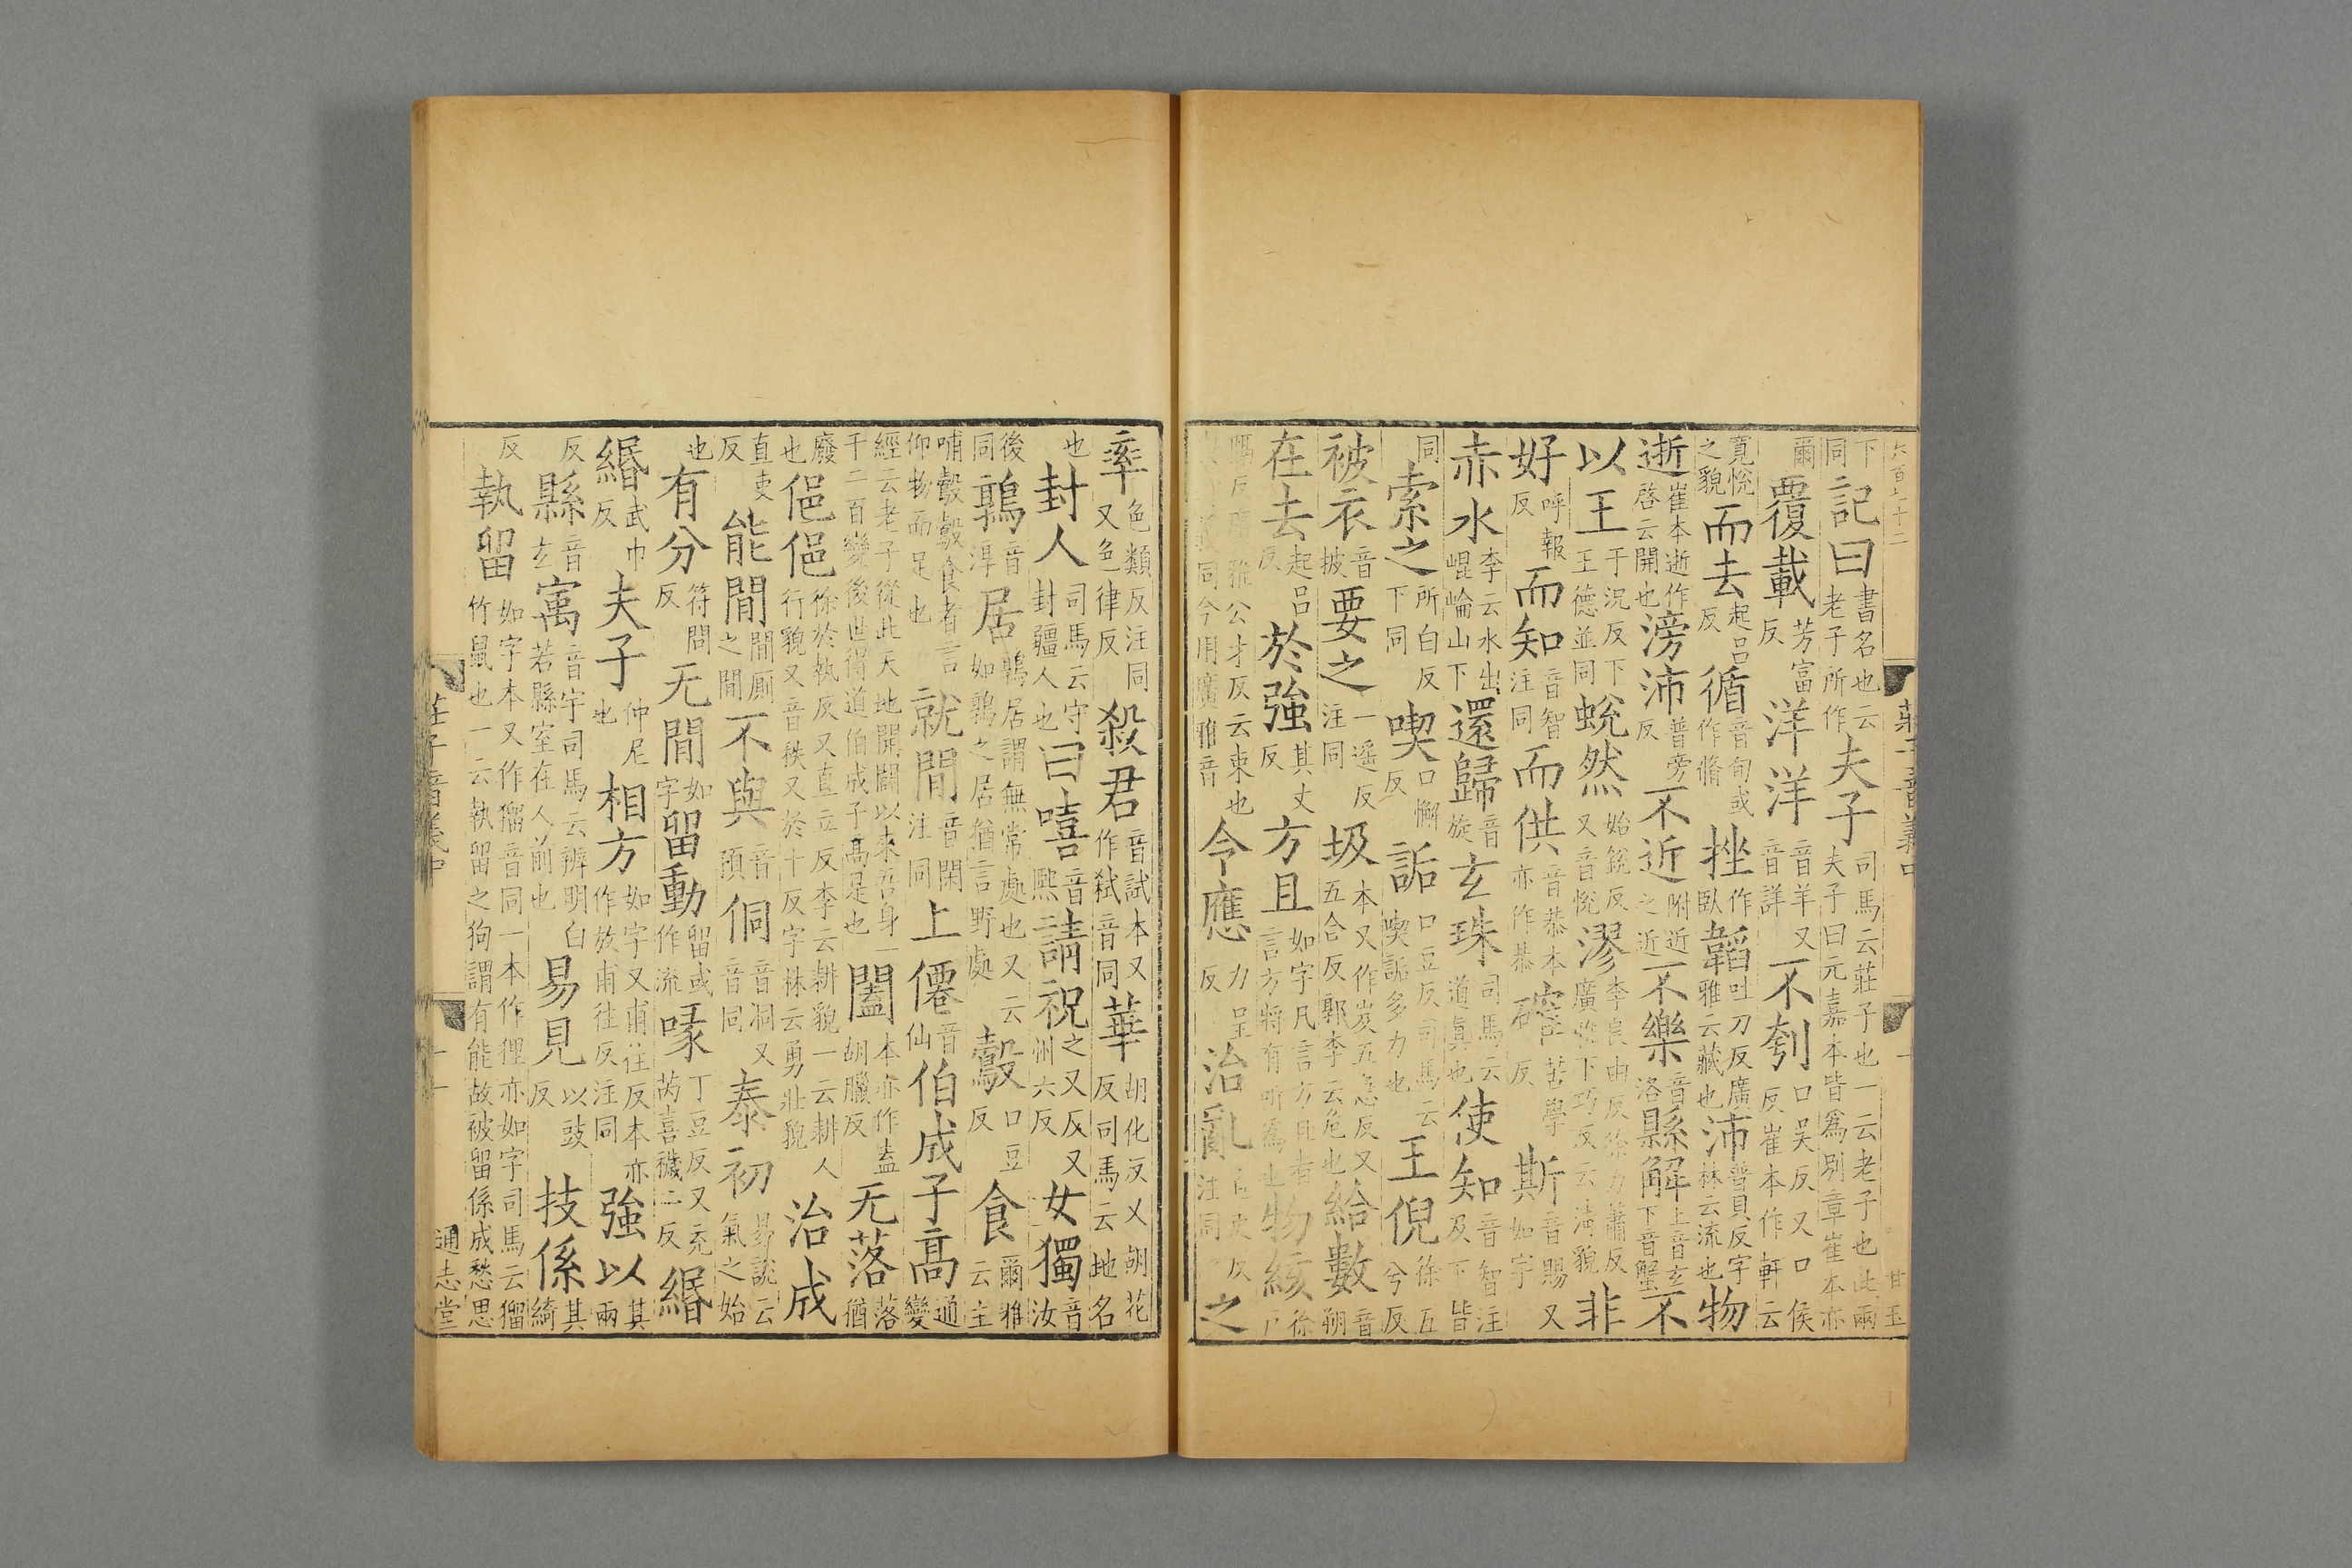 六百七十二
下同記曰書名也云老子所作夫子司馬云莊子也一云老子也此兩夫子曰元嘉本皆爲別章崔本亦
爾覆載芳富反洋洋音羊又音詳不刳口吴反又口侯反崔本作軒云
寬悅之貌而去起吕反循音旬或作脩挫作臥韜吐刀反廣雅云藏也沛普貝反字林云流也物
逝崔本逝作啓云開也滂沛普旁反不近附近之近不樂音洛縣解上音玄下音蟹不
以王于況反下王德並同蛻然始銳反又音悅漻李良由反徐力蕭反廣雅下巧反云清貌非
好呼報反而知音智注同而供音恭本亦作恭確苦學反斯音賜又如字
赤水李云水出崐崘山下還歸音旋玄珠司馬云道真也使知音智注及下皆
同索之所白反下同喫口懈反詬口豆反司馬云喫詬多力也王倪徐五兮反
被衣音披要之一遥反注同圾本又作岌五急反又五合反郭李云危也給數音朔
在去起吕反於強其丈反方且如字凡言方且者言方將有所爲也物絯徐
公才反云束也同今用廣雅音令應力呈反治亂直吏反注同之
莊子音義中
甘玉
率色類反注同又色律反殺君音試本又作弑音同華胡化反又胡花反司馬云地名
也封人司馬云守封疆人也曰嘻音熙請祝之又反又州六反女獨音汝
後同鶉音淳居鶉居謂無常處也又云如鶉之居猶言野處鷇口豆反食爾雅云主
哺鷇鷇食者言仰物而足也就閒音閑注同上僊音仙伯成子高通變
經云老子從此天地開闢以來吾身一千二百變後世得道伯成子高是也闔本亦作盍胡臘反无落落猶
廢也俋俋徐於執反又直立反李云耕貌一云耕人行貌又音秩又於十反字林云勇壯貌治成
直吏反能閒閒厠之閒不與音預侗音洞又音同泰初易說云氣之始
也有分符問反无閒如字留動留或作流喙丁豆反又充芮喜穢二反緡
緡武巾反夫子仲尼也相方如字又甫往反本亦作放甫往反注同強以其兩
反縣音玄㝢音宇司馬云辨明白若縣室在人前也易見以豉反技係其綺
反執留如字本又作獝音同一本作貍亦如字司馬云獝竹鼠也一云執留之狗謂有能故被留係成愁思
莊子音義中
十一
通志堂